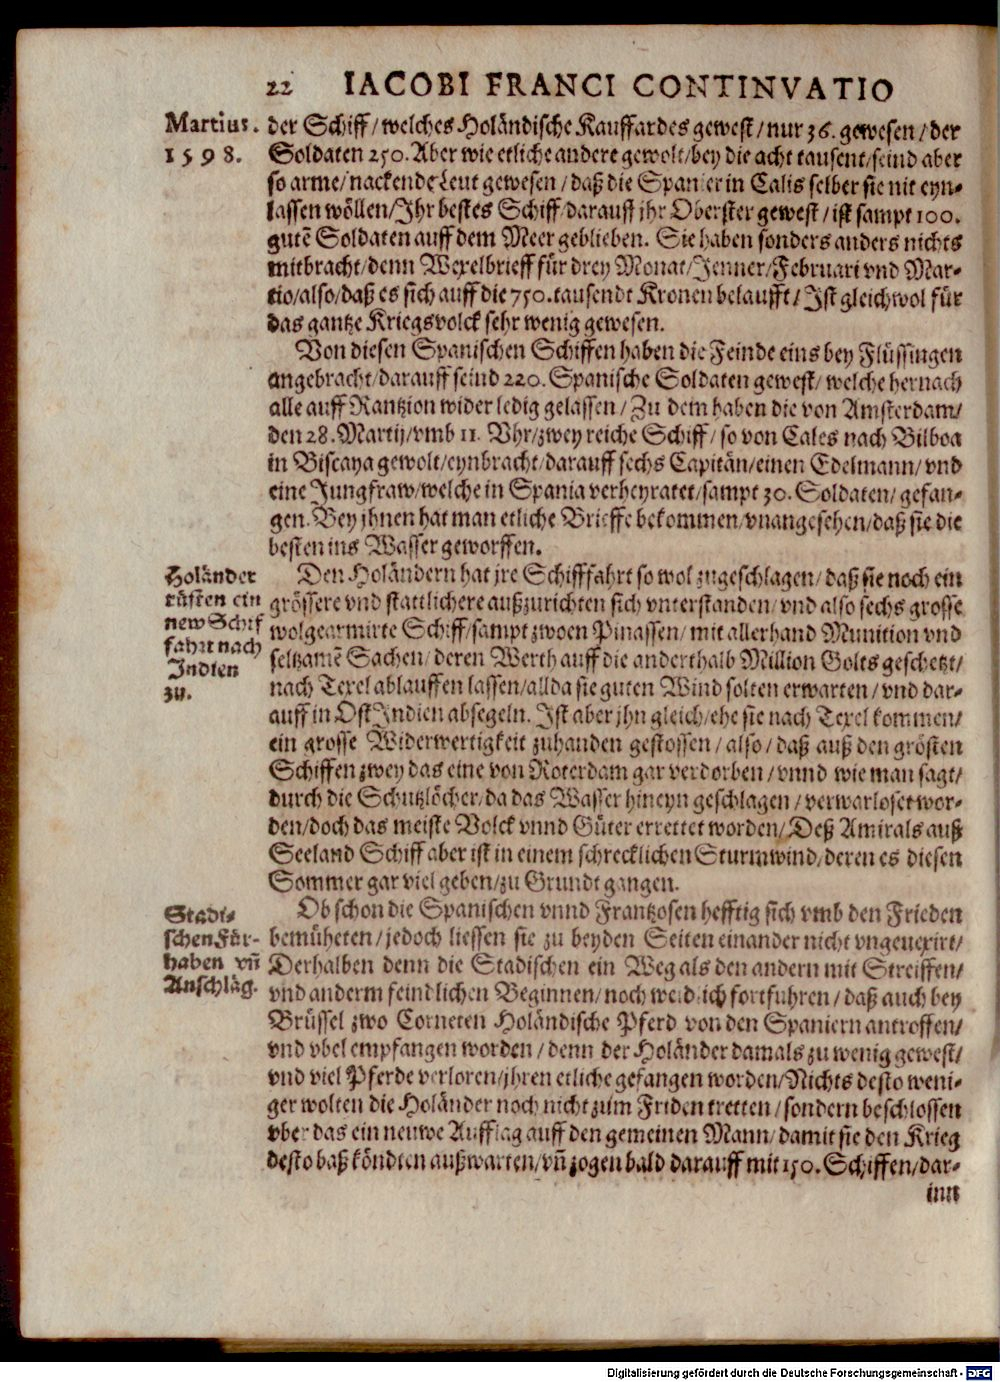 22 IACOBI FRANCI CONTINVATIO
Martius.
1598.
der Schiff/welches Holändische Kauffardes gewest/nur 36. gewesen/der
Soldaten 250. Aber wie etliche andere gewolt/bey die acht tausent/seind aber
so arme/nackende Leut gewesen/daß die Spanier in Calis selber sie nit eyn-
lassen wöllen/Ihr bestes Schiff/darauff jhr Oberster gewest/ist sampt 100.
gutẽ Soldaten auff dem Meer geblieben. Sie haben sonders anders nichts
mitbracht/denn Wexelbrieff für drey Monat/Jenner/Februari vnd Mar-
tio/also/daß es sich auff die 750. tausendt Kronen belaufft/Ist gleichwol für
das gantze Kriegsvolck sehr wenig gewesen.
Von diesen Spanischen Schiffen haben die Feinde eins bey Flüssingen
angebracht/darauff seind 220. Spanische Soldaten gewest/welche hernach
alle auff Rantzion wider ledig gelassen/Zu dem haben die von Amsterdam/
den 28. Martij/vmb 11. Vhr/zwey reiche Schiff/so von Cales nach Bilboa
in Biscaya gewolt/eynbracht/darauff sechs Capitän/einen Edelmann/vnd
eine Jungfraw/welche in Spania verheyratet/sampt 30. Soldaten/gefan-
gen. Bey jhnen hat man etliche Brieffe bekommen/vnangesehen/daß sie die
besten ins Wasser geworffen.
Holänder
rüsten ein
new Schif
fahrt nach
Indien
zu.
Den Holändern hat jre Schifffahrt so wol zugeschlagen/daß sie noch ein
grössere vnd stattlichere außzurichten sich vnterstanden/vnd also sechs grosse
wolgearmirte Schiff/sampt zwoen Pinassen/mit allerhand Munition vnd
seltzamẽ Sachen/deren Werth auff die anderthalb Million Golts geschetzt/
nach Texel ablauffen lassen/allda sie guten Wind solten erwarten/vnd dar-
auff in OstIndien absegeln. Ist aber jhn gleich/ehe sie nach Texel kommen/
ein grosse Widerwertigkeit zuhanden gestossen/also/daß auß den grösten
Schiffen zwey das eine von Roterdam gar verdorben/vnnd wie man sagt/
durch die Schutzlöcher/da das Wasser hineyn geschlagen/verwarloset wor-
den/doch das meiste Volck vnnd Güter errettet worden/Deß Amirals auß
Seeland Schiff aber ist in einem schrecklichen Sturmwind/deren es diesen
Sommer gar viel geben/zu Grundt gangen.
Stadi-
schen Für-
haben vñ
Anschläg.
Ob schon die Spanischen vnnd Frantzosen hefftig sich vmb den Frieden
bemüheten/jedoch liessen sie zu beyden Seiten einander nicht vngeuexirt/
Derhalben denn die Stadischen ein Weg als den andern mit Streiffen/
vnd anderm feindlichen Beginnen/noch weidlich fortfuhren/daß auch bey
Brüssel zwo Corneten Holändische Pferd von den Spaniern antroffen/
vnd vbel empfangen worden/denn der Holänder damals zu wenig gewest/
vnd viel Pferde verloren/jhren etliche gefangen worden/Nichts desto weni-
ger wolten die Holänder noch nicht zum Friden tretten/sondern beschlossen
vber das ein neuwe Aufflag auff den gemeinen Mann/damit sie den Krieg
desto baß köndten außwarten/vñ zogen bald darauff mit 150. Schiffen/dar-
inn
Digitalisierung gefördert durch die Deutsche Forschungsgemeinschaft - DFG